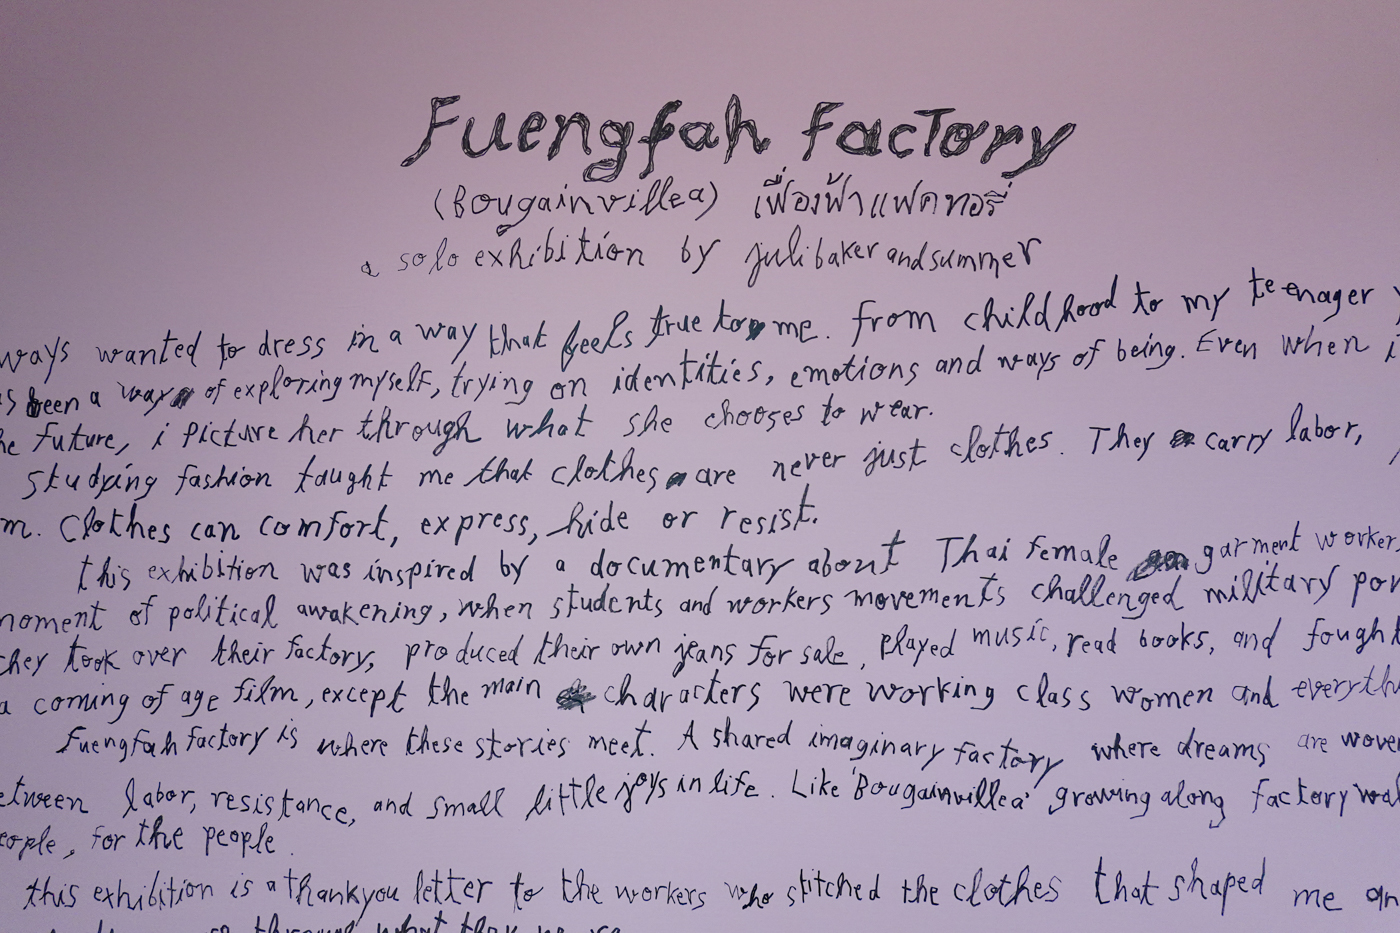 Fuengfah factory
(Bougainvillea) เฟื่องฟ้าแฟคทอรี่
a solo exhibition by juli baker and summer
ways wanted to dress in a way that feels true to me. From childhood to my teenager
been a way of exploring myself, trying on identities, emotions and ways of being. Even when i
he future, i picture her through what she chooses to wear.
studying fashion taught me that clothes are never just clothes. They carry labor,
m. Clothes can comfort, express, hide or resist.
this exhibition was inspired by a documentary about Thai female garment worker
moment of political awakening, when students and workers movements challenged military pow
they took over their factory, produced their own jeans for sale, played music, read books, and fought
a coming of age film, except the main characters were working class women and everythi
Fuengfah factory is where these stories meet. A shared imaginary factory where dreams are woven
etween labor, resistance, and small little joys in life. Like 'Bougainvillea' growing along factory wal
eople, for the people.
this exhibition is a thank you letter to the workers who stitched the clothes that shaped me an
through what they